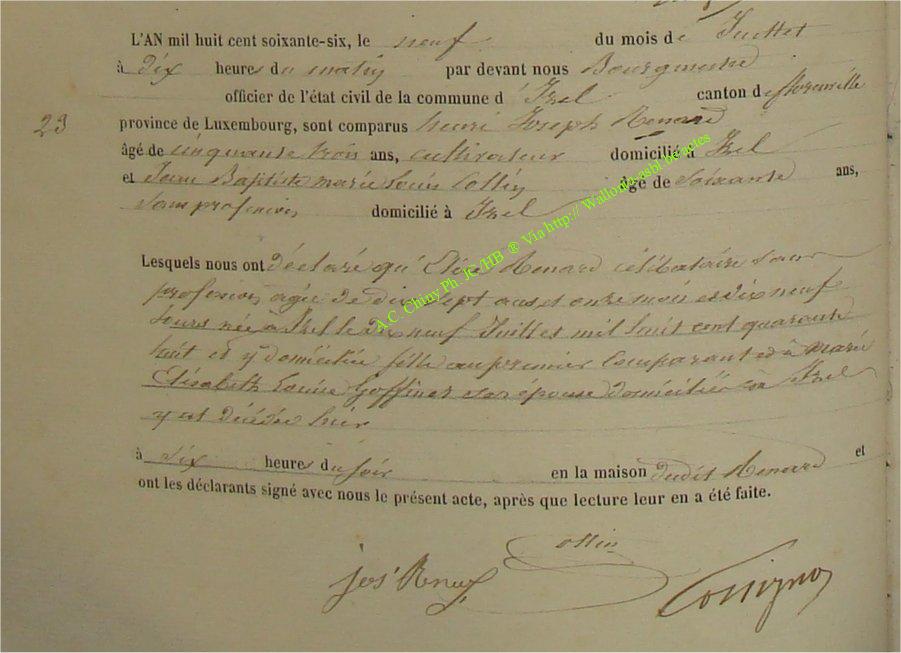 L'AN mil huit cent soixante-six, le neuf du mois de Juillet
à dix heures du matin par devant nous Bourgmestre
officier de l'état civil de la commune d'Izel canton de florenville
23 province de Luxembourg, sont comparus henri Joseph Renard
âgé de cinquante trois ans, cultivateur domicilié à Izel
et Jean Baptiste marie Louis Collin âgé de Soixante ans,
Sans profession domicilié à Izel
Lesquels nous ont déclaré qu' Renard célibataire Sans
profession agée de dix Sept ans et onze mois et dix neuf
Jours née à Izel le dix neuf Juillet mil huit cent quarante
huit et y domiciliée fille au premier Comparant et à marie
Elisabeth Louise Goffinet Son épouse domiciliée à Izel
y est décédée hier
à dix heures du soir en la maison dudit Renard et
ont les déclarants signé avec nous le présent acte, après que lecture leur en a été faite.
Collin
jos Renard
A.C. Chiny Ph. JC/HB ® Via http:// Wallonia-asbl.be/actes